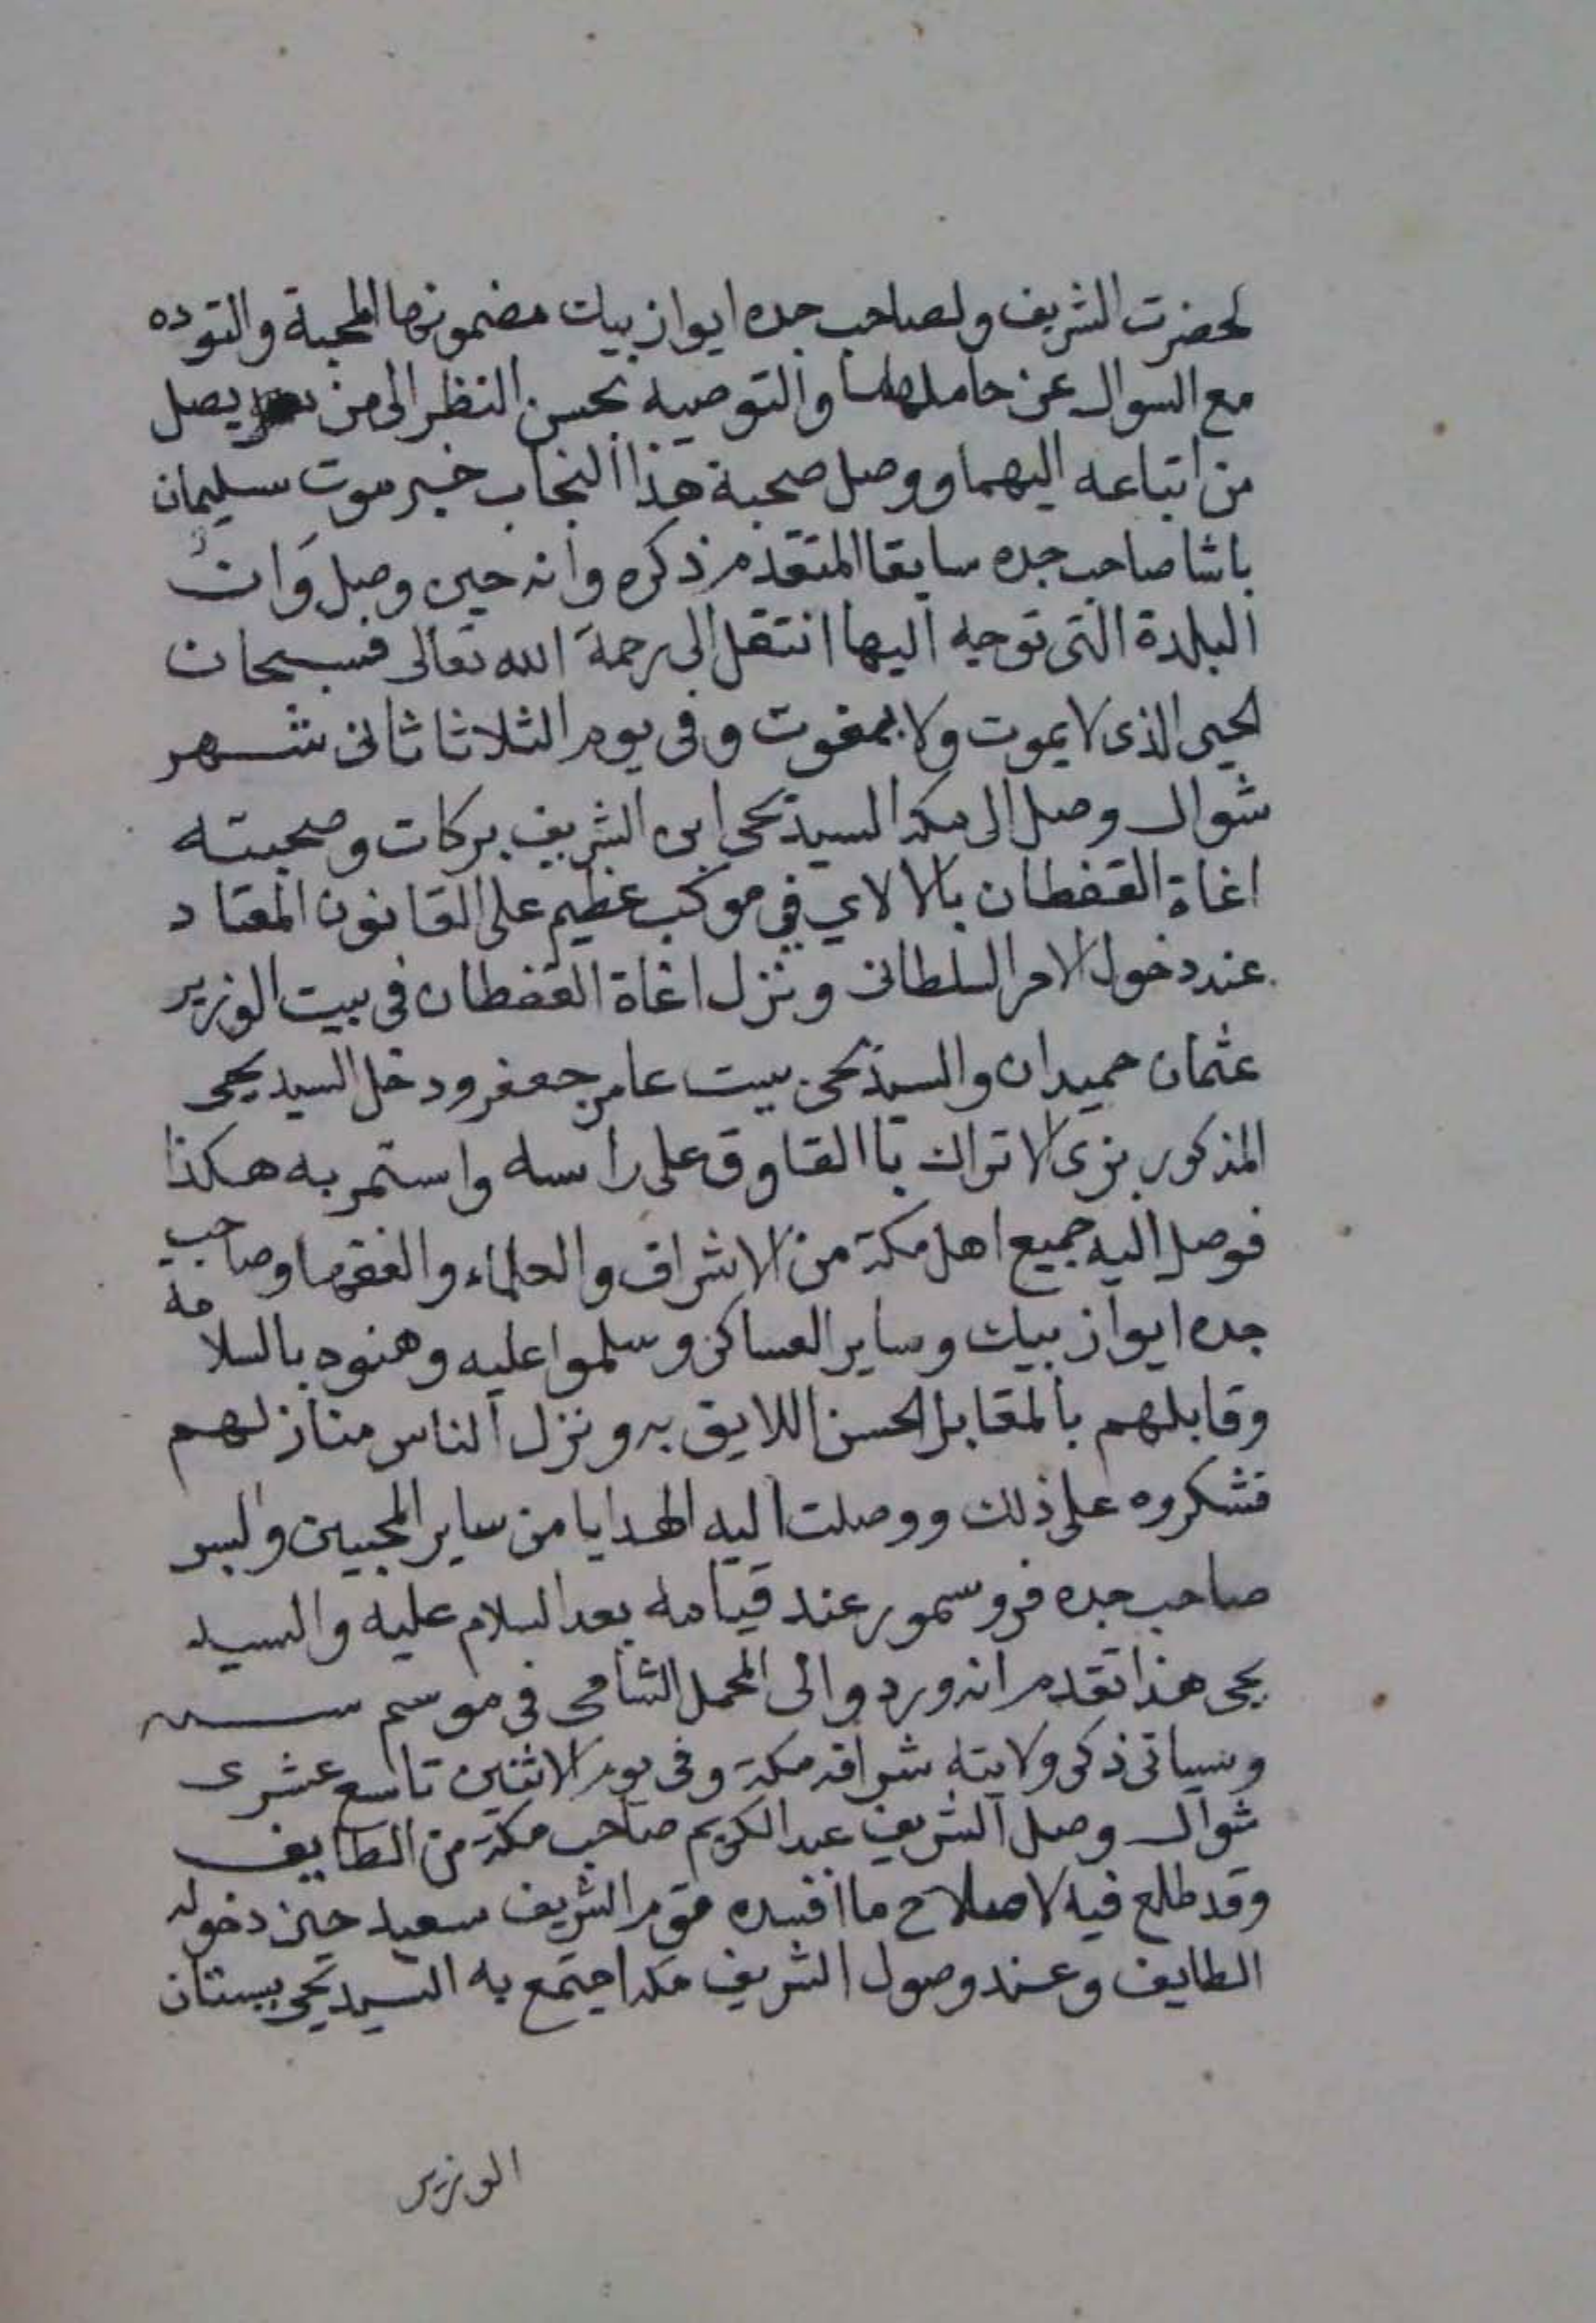 لحضرت الشريف ولصاحب جده ايواز بيك مضمونها المحبة والتوده
مع السوال عن حاملها والتوصيه بحسن النظر الى من يصل
من اتباعه اليهما ووصل صحبة هذا النجاب خبر موت سليمان
باشا صاحب جده سابقا المتقدم ذكره وانه حين وصل وان
البلدة التى توجه اليها انتقل الى رحمة الله تعالى فسبحان
الحيى الذى لا يموت ولا يفوت وفى يوم الثلاثا ثانى شهر
شوال وصل الى مكه السيد يحى ابن الشريف بركات وصحبته
اغاة القفطان بالالاي في موكب عظيم على القانون المعتاد
عند دخول الامر السلطانى ونزل اغاة القفطان فى بيت الوزير
عثمان حميدان والسيد يحى بيت عامر جعفر ودخل السيد يحيى
المذكور بزى الاتراك باالقاوق على راسه واستمر به هكذا
فوصل اليه جميع اهل مكة من الاشراف والعلماء والفقها وصاحب
جده ايواز بيك وساير العساكر وسلموا عليه وهنوه بالسلامه
وقابلهم بالمقابل الحسن اللايق به ونزل الناس منازلهم
فشكروه على ذلك ووصلت اليه الهدايا من ساير المحبين والبس
صاحب جده فرو سمور عند قيامه بعد السلام عليه والسيد
يحيى هذا تقدم انه ورد والى المحمل الشامى فى موسم سنه
وسياتى ذكر ولايته شرافه مكة وفى يوم الاثنين تاسع عشرى
شوال وصل الشريف عبد الكريم صاحب مكة من الطايف
وقد طلع فيه لاصلاح ما افسده قوم الشريف سعيد حين دخوله
الطايف وعند وصول الشريف مكه اجتمع به السيد يحيى ببستان
الوزير